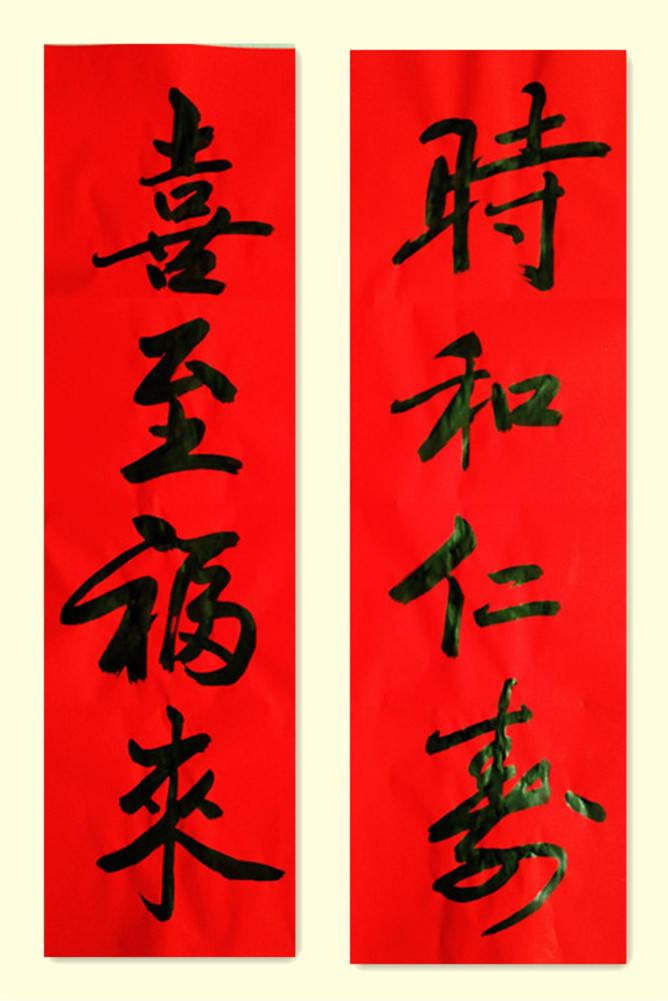 時和仁寿
喜至福來